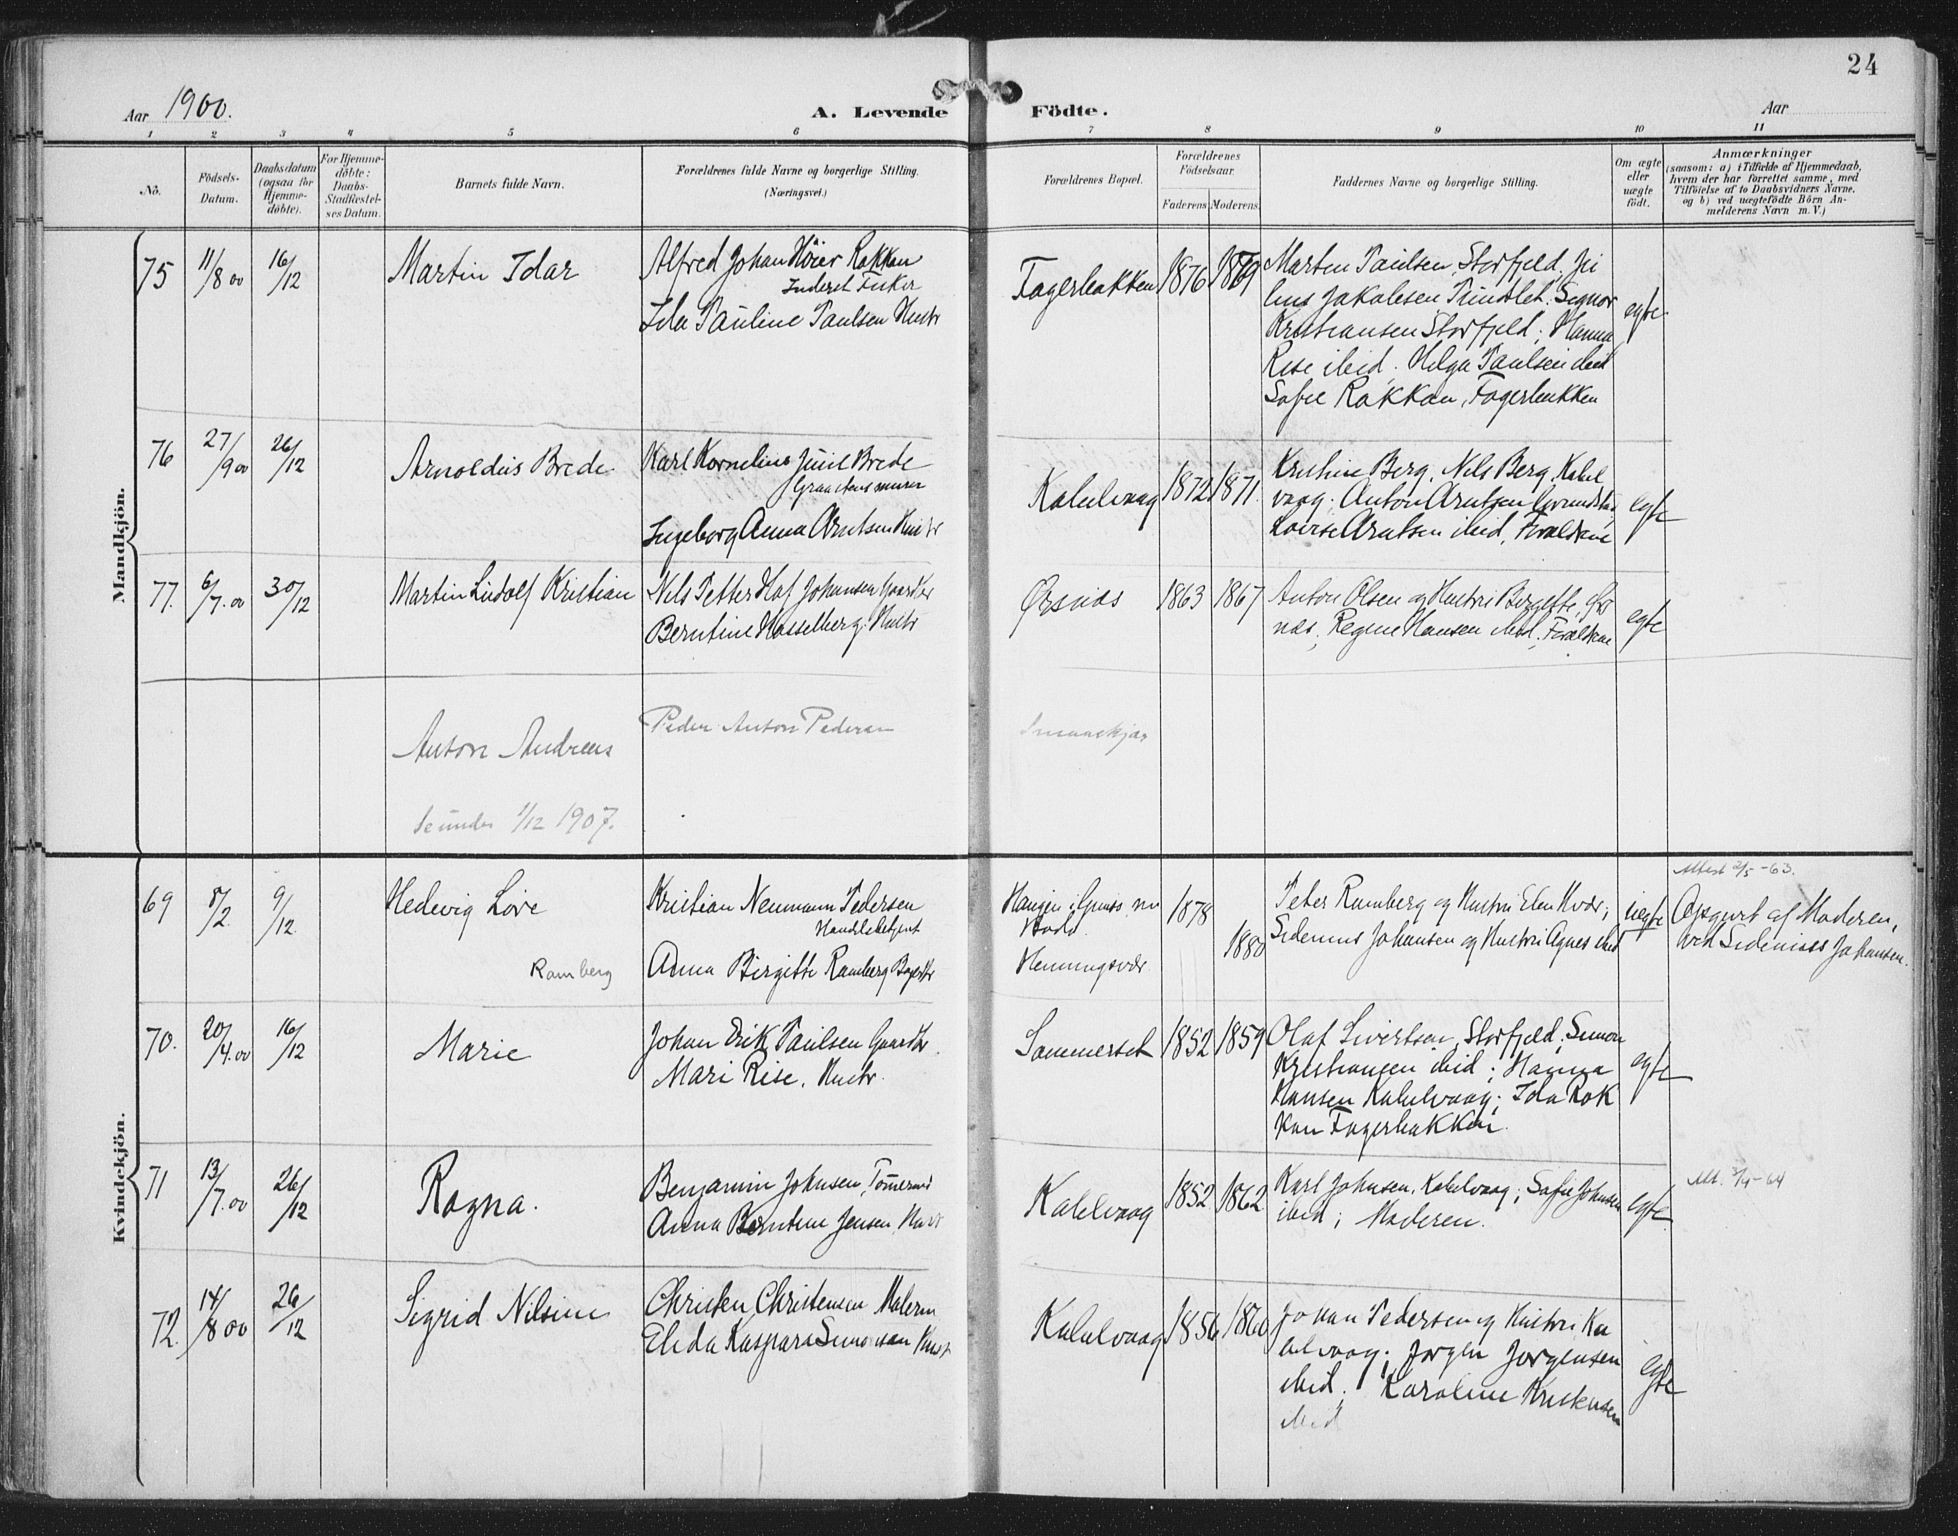 24
Aar 1900.
A. Levende Födte.
Aar
1 2 3 4 5 6 7 8 9 10 11
No.
Födsels-Datum.
Daabsdatum (ogsaa for Hjemme-döbte).
For Hjemme-döbte: Daabs-Stadfæstel-ses Datum.
Barnets fulde Navn.
Forældrenes fulde Navne og borgerlige Stilling.
(Næringsvei.)
Forældrenes Bopæl.
Forældrenes Födselsaar.
Faderens. Moderens.
Faddernes Navne og borgerlige Stilling.
Om ægte eller uægte födt.
Anmærkninger
(saasom: a) i Tilfælde af Hjemmedaab,
hvem der har forrettet samme, med
Tilföielse af to Daabsvidners Navne.
og b) ved uægtefödte Börn An-
melderens Navn m. V.)
Mandkjön.
75 11/8 00 16/12 Martin Idar
Alfred Johan Høier Rokkan
Inderst Fisker
Ida Pauline Paulsen Hustr
Fagerbakken 1876 1869
Marten Paulsen, Storfjeld. Ju
lius Jakobsen Signor
Kristiansen Storfjeld; Hanna
Rise ibid. Helga Paulsen ibid
Sofie Rokkan, Fagerbakken
egte
76 27/9 00 26/12 Arnoldus Brede
Karl Kornelius Juul Brede
Graastensmurer
Ingeborg Anna Arntsen Hustr
Kabelvaag 1872 1871.
Kristine Berg, Nils Berg, Kabel
vaag; Anton Arntsen Grundstad,
Lovise Arntsen ibid, Forældrene
egte
77. 6/7. 00 30/12 Martin Ludolf Kristian
Nils Petter Johansen Gaardbr
Berntine Hasselberg. Hustr
Ørsnes 1863 1867
Anton Olsen og Hustru Birgitte, Ørs
nes, Regine Hansen ibid, Forældrene
egte
Anton Andreas
Peder Anton Pedersen
1/12 1907.
Kvindekjön.
69 8/2. 9/12. Hedevig Love
Ramberg
Kristian Neumann Pedersen
Handelsbetjent
Anna Birgitte Ramberg
Bodø
Henningsvær
1878
1880
Peter Ramberg og Hustru Elen Hvær;
Sedenius Johansen og Hustru Agnes ibid
uegte
Attest 2/5-63.
Opgivet af Moderen,
ved Sedenius Johansen.
70. 20/4. 00 16/12 Marie
Johan Erik Paulsen Gaardbr.
Mari Rise. Hustr.
Sommerset 1852 1859
Olaf Sivertsen, Storfjeld; Simon
Kristiansen ibid; Hanna
Hansen Kabelvaag; Ida Rok
kan Fagerbakken.
egte
71 13/7. 00 26/12 Ragna.
Benjamin Johnsen, Tømmermd
Anna Berntine Jensen, Hustr
Kabelvaag 1852 1862
Karl Johnsen, Kabelvaag; Sofie Johnsen
ibid; Moderen.
egte
72. 14/8 00 26/12 Sigrid Nilsine
Christen Christensen Maler
Elida Kaspara Simonsen Hustr
Kabelvaag 1856 1860
Johan Pedersen og Hustru Ka
belvaag; Jørgen Jørgensen
ibid. Karoline Kristensen
ibid
egte